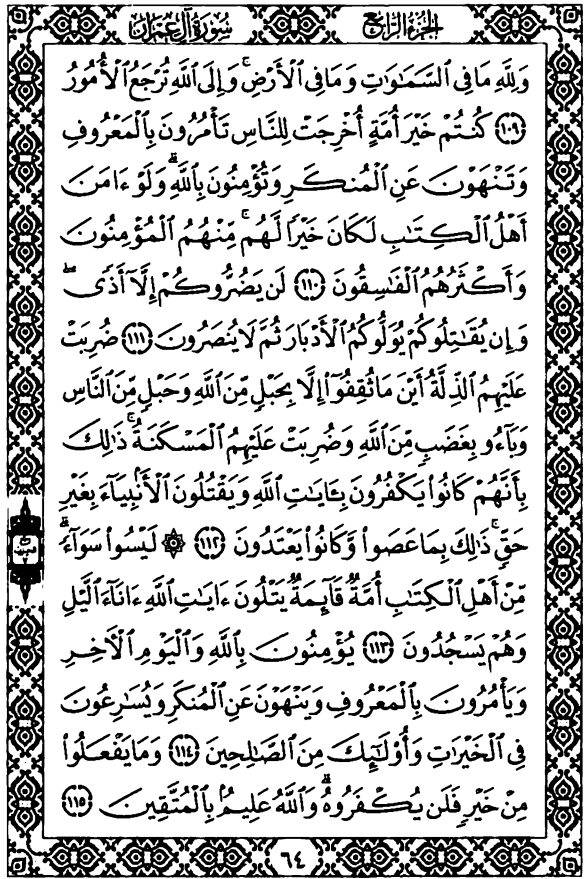 سُورَةُ آلِ عِمْرَان
الجُزءُ الرَّابِعُ
وَلِلَّهِ مَا فِي السَّمَٰوَٰتِ وَمَا فِي الْأَرْضِ ۚ وَإِلَى اللَّهِ تُرْجَعُ الْأُمُورُ
﴿١٠٩﴾ كُنتُمْ خَيْرَ أُمَّةٍ أُخْرِجَتْ لِلنَّاسِ تَأْمُرُونَ بِالْمَعْرُوفِ
وَتَنْهَوْنَ عَنِ الْمُنكَرِ وَتُؤْمِنُونَ بِاللَّهِ ۗ وَلَوْ ءَامَنَ
أَهْلُ الْكِتَٰبِ لَكَانَ خَيْرًا لَّهُم ۚ مِّنْهُمُ الْمُؤْمِنُونَ
وَأَكْثَرُهُمُ الْفَٰسِقُونَ ﴿١١٠﴾ لَن يَضُرُّوكُمْ إِلَّآ أَذًى ۖ
وَإِن يُقَٰتِلُوكُمْ يُوَلُّوكُمُ الْأَدْبَارَ ثُمَّ لَا يُنصَرُونَ ﴿١١١﴾ ضُرِبَتْ
عَلَيْهِمُ الذِّلَّةُ أَيْنَ مَا ثُقِفُوٓا۟ إِلَّا بِحَبْلٍ مِّنَ اللَّهِ وَحَبْلٍ مِّنَ النَّاسِ
وَبَآءُو بِغَضَبٍ مِّنَ اللَّهِ وَضُرِبَتْ عَلَيْهِمُ الْمَسْكَنَةُ ۚ ذَٰلِكَ
بِأَنَّهُمْ كَانُوا۟ يَكْفُرُونَ بِـَٔايَٰتِ اللَّهِ وَيَقْتُلُونَ الْأَنۢبِيَآءَ بِغَيْرِ
حَقٍّ ۚ ذَٰلِكَ بِمَا عَصَوا۟ وَّكَانُوا۟ يَعْتَدُونَ ﴿١١٢﴾ ۞ لَيْسُوا۟ سَوَآءً ۗ
مِّنْ أَهْلِ الْكِتَٰبِ أُمَّةٌ قَآئِمَةٌ يَتْلُونَ ءَايَٰتِ اللَّهِ ءَانَآءَ الَّيْلِ
وَهُمْ يَسْجُدُونَ ﴿١١٣﴾ يُؤْمِنُونَ بِاللَّهِ وَالْيَوْمِ الْءَاخِرِ
وَيَأْمُرُونَ بِالْمَعْرُوفِ وَيَنْهَوْنَ عَنِ الْمُنكَرِ وَيُسَٰرِعُونَ
فِي الْخَيْرَٰتِ وَأُو۟لَٰٓئِكَ مِنَ الصَّٰلِحِينَ ﴿١١٤﴾ وَمَا يَفْعَلُوا۟
مِنْ خَيْرٍ فَلَن يُكْفَرُوهُ ۗ وَاللَّهُ عَلِيمٌۢ بِالْمُتَّقِينَ ﴿١١٥﴾
٦٤